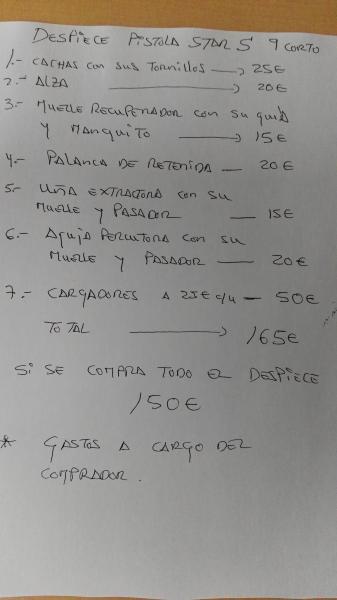 DESPIECE PISTOLA STAR S 9 CORTO
1.- CACHAS con sus Tornillos → 25€
2.- ALZA → 20€
3.- MUELLE RECUPERADOR con su guia
y MANGUITO → 15€
4.- PALANCA DE RETENIDA — 20€
5.- UÑA EXTRACTORA con su
MUELLE y PASADOR — 15€
6.- AGUJA PERCUTORA con su
MUELLE y PASADOR — 20€
7.- CARGADORES A 25€ c/u — 50€
TOTAL → 165€
SI SE COMPRA TODO EL DESPIECE
150€
* GASTOS A CARGO DEL
COMPRADOR.